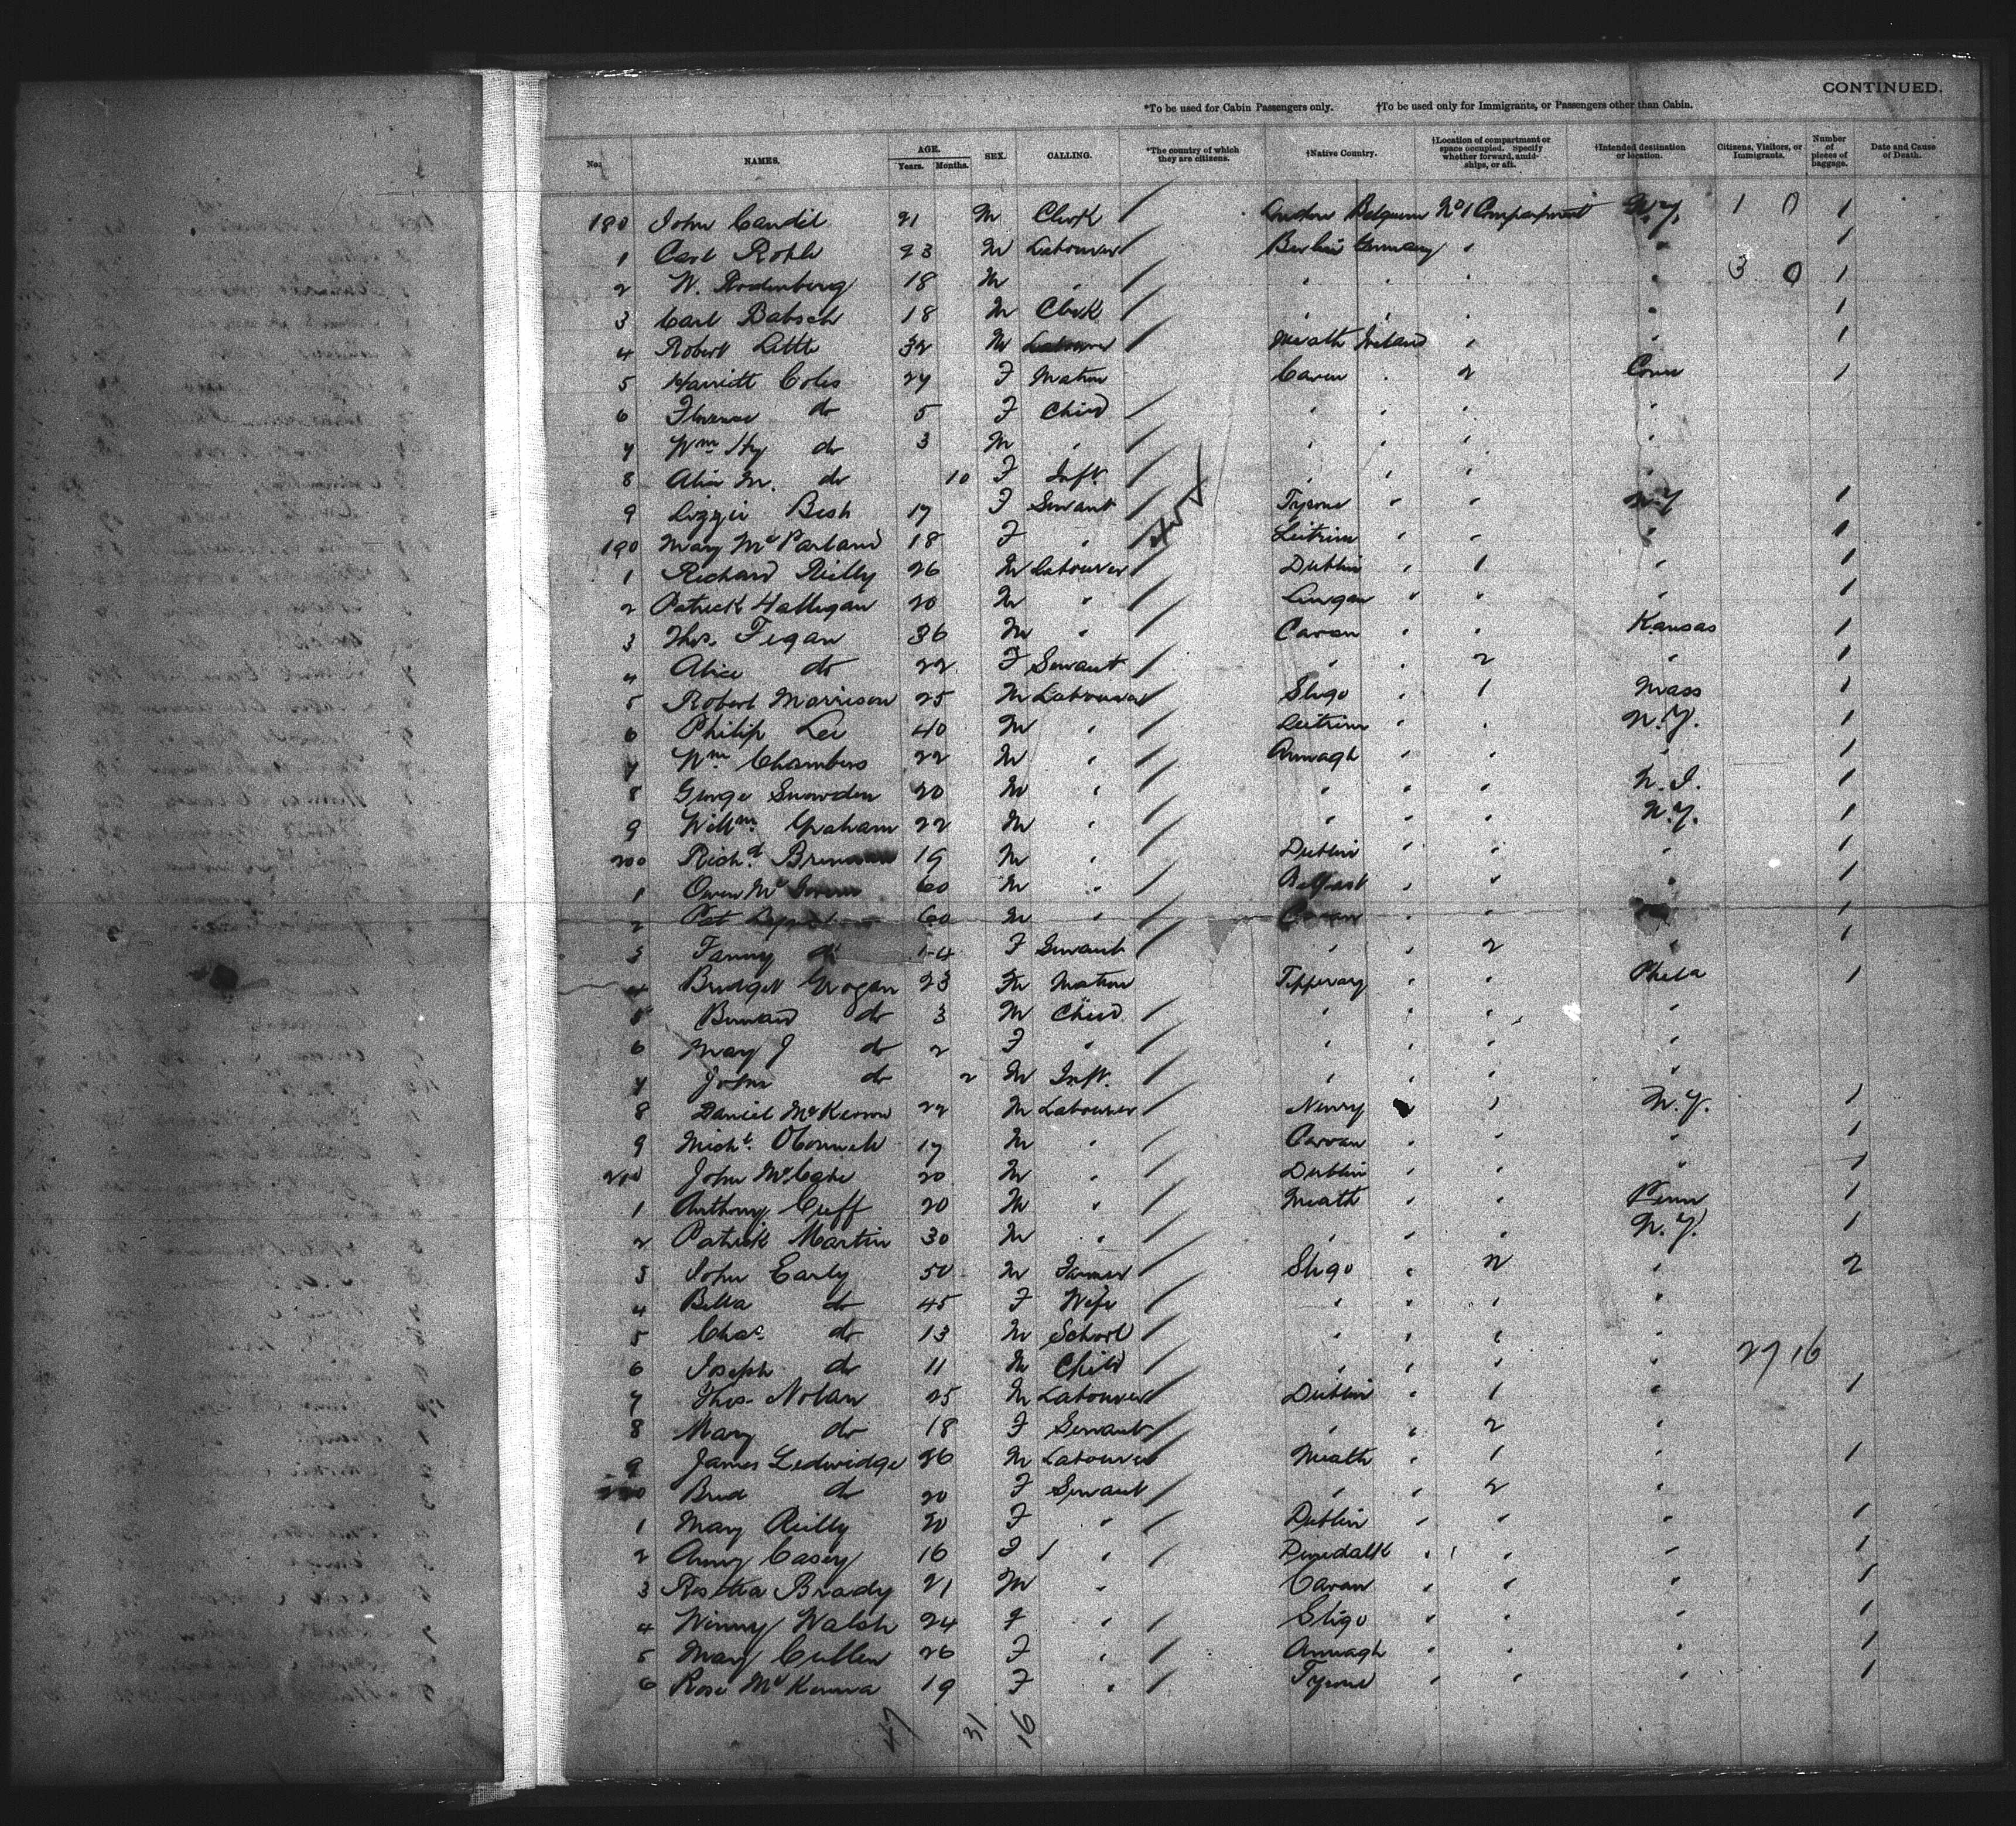 CONTINUED.
*To be used for Cabin Passengers only. †To be used only for Immigrants, or Passengers other than Cabin.
No. NAMES. AGE. Years. Months. SEX. CALLING. *The country of which they are citizens. †Native Country. †Location of compartment or space occupied. Specify whether forward, amidships, or aft. †Intended destination or location. Citizens, Visitors, or Immigrants. Number of pieces of baggage. Date and Cause of Death.
180 John Candit 21 M Clerk Belgium No 1 Compartment N.Y. 1 0 1
1 Carl Rohle 23 M Labourer Berlin Germany " " 1
2 W. Rodenberg 18 M " " " " " 3 0 1
3 Carl Babsch 18 M Clerk " " " " 1
4 Robert Little 32 M Labourer Meath Ireland " " 1
5 Harriett Coles 27 F Matron Cavan " 2 Conn 1
6 Florence do 5 F Child " " " "
7 Wm Hy do 3 M " " " " "
8 Alice M. do 10 F Inft. " " " "
9 Lizzie Besh 17 F Servant Tyrone " " N.Y 1
190 Mary McParland 18 F " Leitrim " " " 1
1 Richard Reilly 26 M Labourer Dublin " 1 " 1
2 Patrick Halligan 20 M " Lurgan " " " 1
3 Thos. Fegan 36 M " Cavan " " Kansas 1
4 Alice do 22 F Servant " " 2 " 1
5 Robert Morrison 25 M Labourer Sligo " 1 Mass 1
6 Philip Lee 40 M " Leitrim " " N.Y. 1
7 Wm Chambers 22 M " Armagh " " " 1
8 George Snowden 20 M " " " " N.J. 1
9 Willm Graham 22 M " " " " N.Y. 1
200 Richd 19 M " Dublin " " " 1
1 Owen Mc 60 M " Belfast " " " 1
2 Pat 60 M " Cavan " " 1
3 Fanny do F Servant " " 2 " 1
4 Bridget Grogan 23 Fm Matron Tipperary " " Phila 1
5 Bernard do 3 M Child " " " "
6 Mary J do 2 F " " " " "
7 John do 2 M Inft. " " " "
8 Daniel McKeown 22 M Labourer Newry " 1 N.Y. 1
9 Michl. OConnell 17 M " Cavan " " " 1
210 John McCabe 20 M " Dublin " " " 1
1 Anthony Cuff 20 M " Meath " " Penn 1
2 Patrick Martin 30 M " " " " N.Y. 1
3 John Early 50 M Farmer Sligo " 2 " 2
4 Bella do 45 F Wife " " " "
5 Chas. do 13 M School " " " "
6 Joseph do 11 M Child " " " " 27 16
7 Thos. Nolan 25 M Labourer Dublin " 1 " 1
8 Mary do 18 F Servant " " 2 "
9 James Ledwidge 26 M Labourer Meath " 1 " 1
220 Brid do 20 F Servant " " 2 "
1 Mary Reilly 20 F " Dublin " " " 1
2 Anny Casey 16 F " Dundalk " " " 1
3 Rosetta Brady 21 M " Cavan " " " 1
4 Winny Walsh 24 F " Sligo " " " 1
5 Mary Cullen 26 F " Armagh " " " 1
6 Rose McKenna 19 F " Tyrone " " " 1
47 31 16